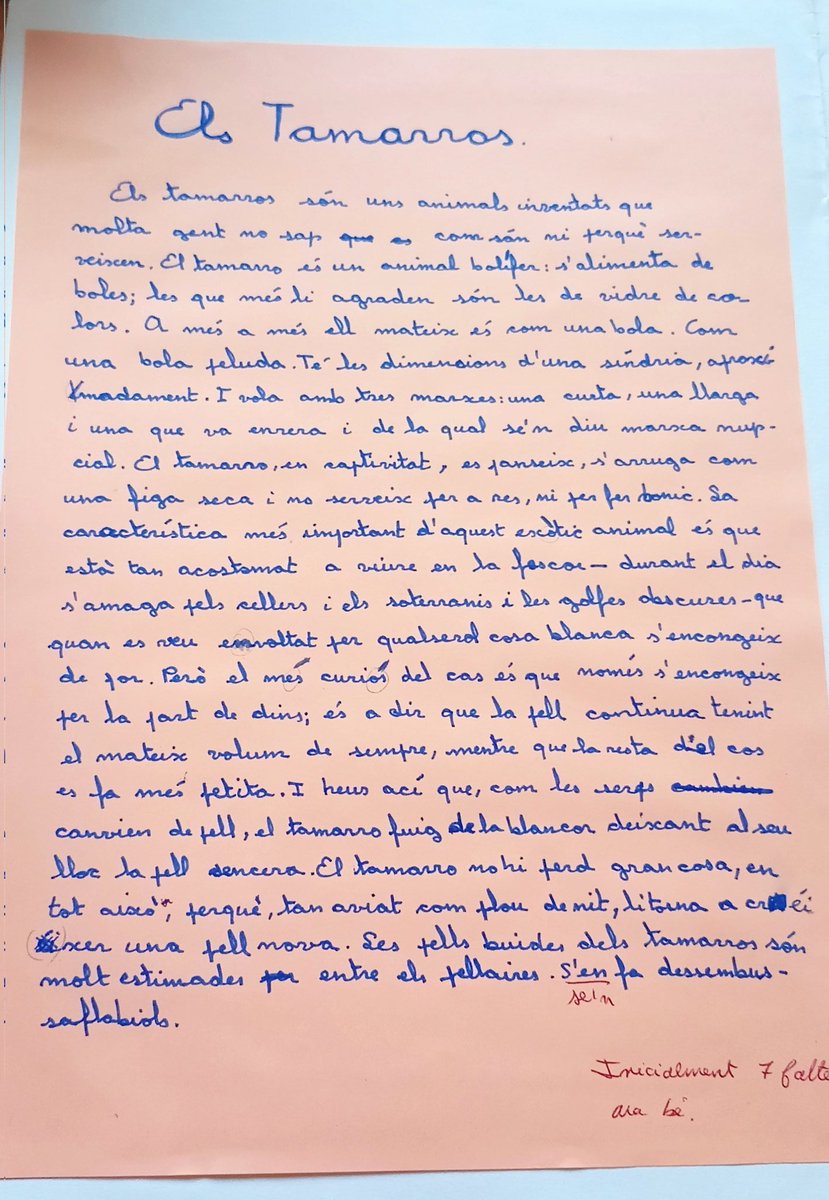 Els Tamarros.
Els tamarros són uns animals inventats que
molta gent no sap que es com són ni perquè ser-
veixen. El tamarro és un animal bolífer: s'alimenta de
boles; les que més li agraden són les de vidre de co-
lors. A més a més ell mateix és com una bola. Com
una bola peluda. Té les dimensions d'una síndria, aproxi
madament. I vola amb tres marxes: una curta, una llarga
i una que va enrera i de la qual se'n diu marxa nup-
cial. El tamarro, en captivitat, es panseix, s'arruga com
una figa seca i no serveix per a res, ni per fer bonic. La
característica més important d'aquest exòtic animal és que
està tan acostomat a viure en la foscor - durant el dia
s'amaga pels cellers i els soterranis i les golfes obscures - que
quan es veu envoltat per qualsevol cosa blanca s'encongeix
de por. Però el més curiós del cas és que només s'encongeix
per la part de dins; és a dir que la pell continua tenint
el mateix volum de sempre, mentre que la resta del cos
es fa més petita. I heus ací que, com les serps cambien
canvien de pell, el tamarro fuig de la blancor deixant al seu
lloc la pell sencera. El tamarro no hi perd gran cosa, en
tot això, perquè, tan aviat com plou de nit, li torna a créi
xer una pell nova. Les pells buides dels tamarros són
molt estimades per entre els pellaires. S'en fa dessembus-
saflabiols.
se'n
Inicialment 7 falte
ara bé.